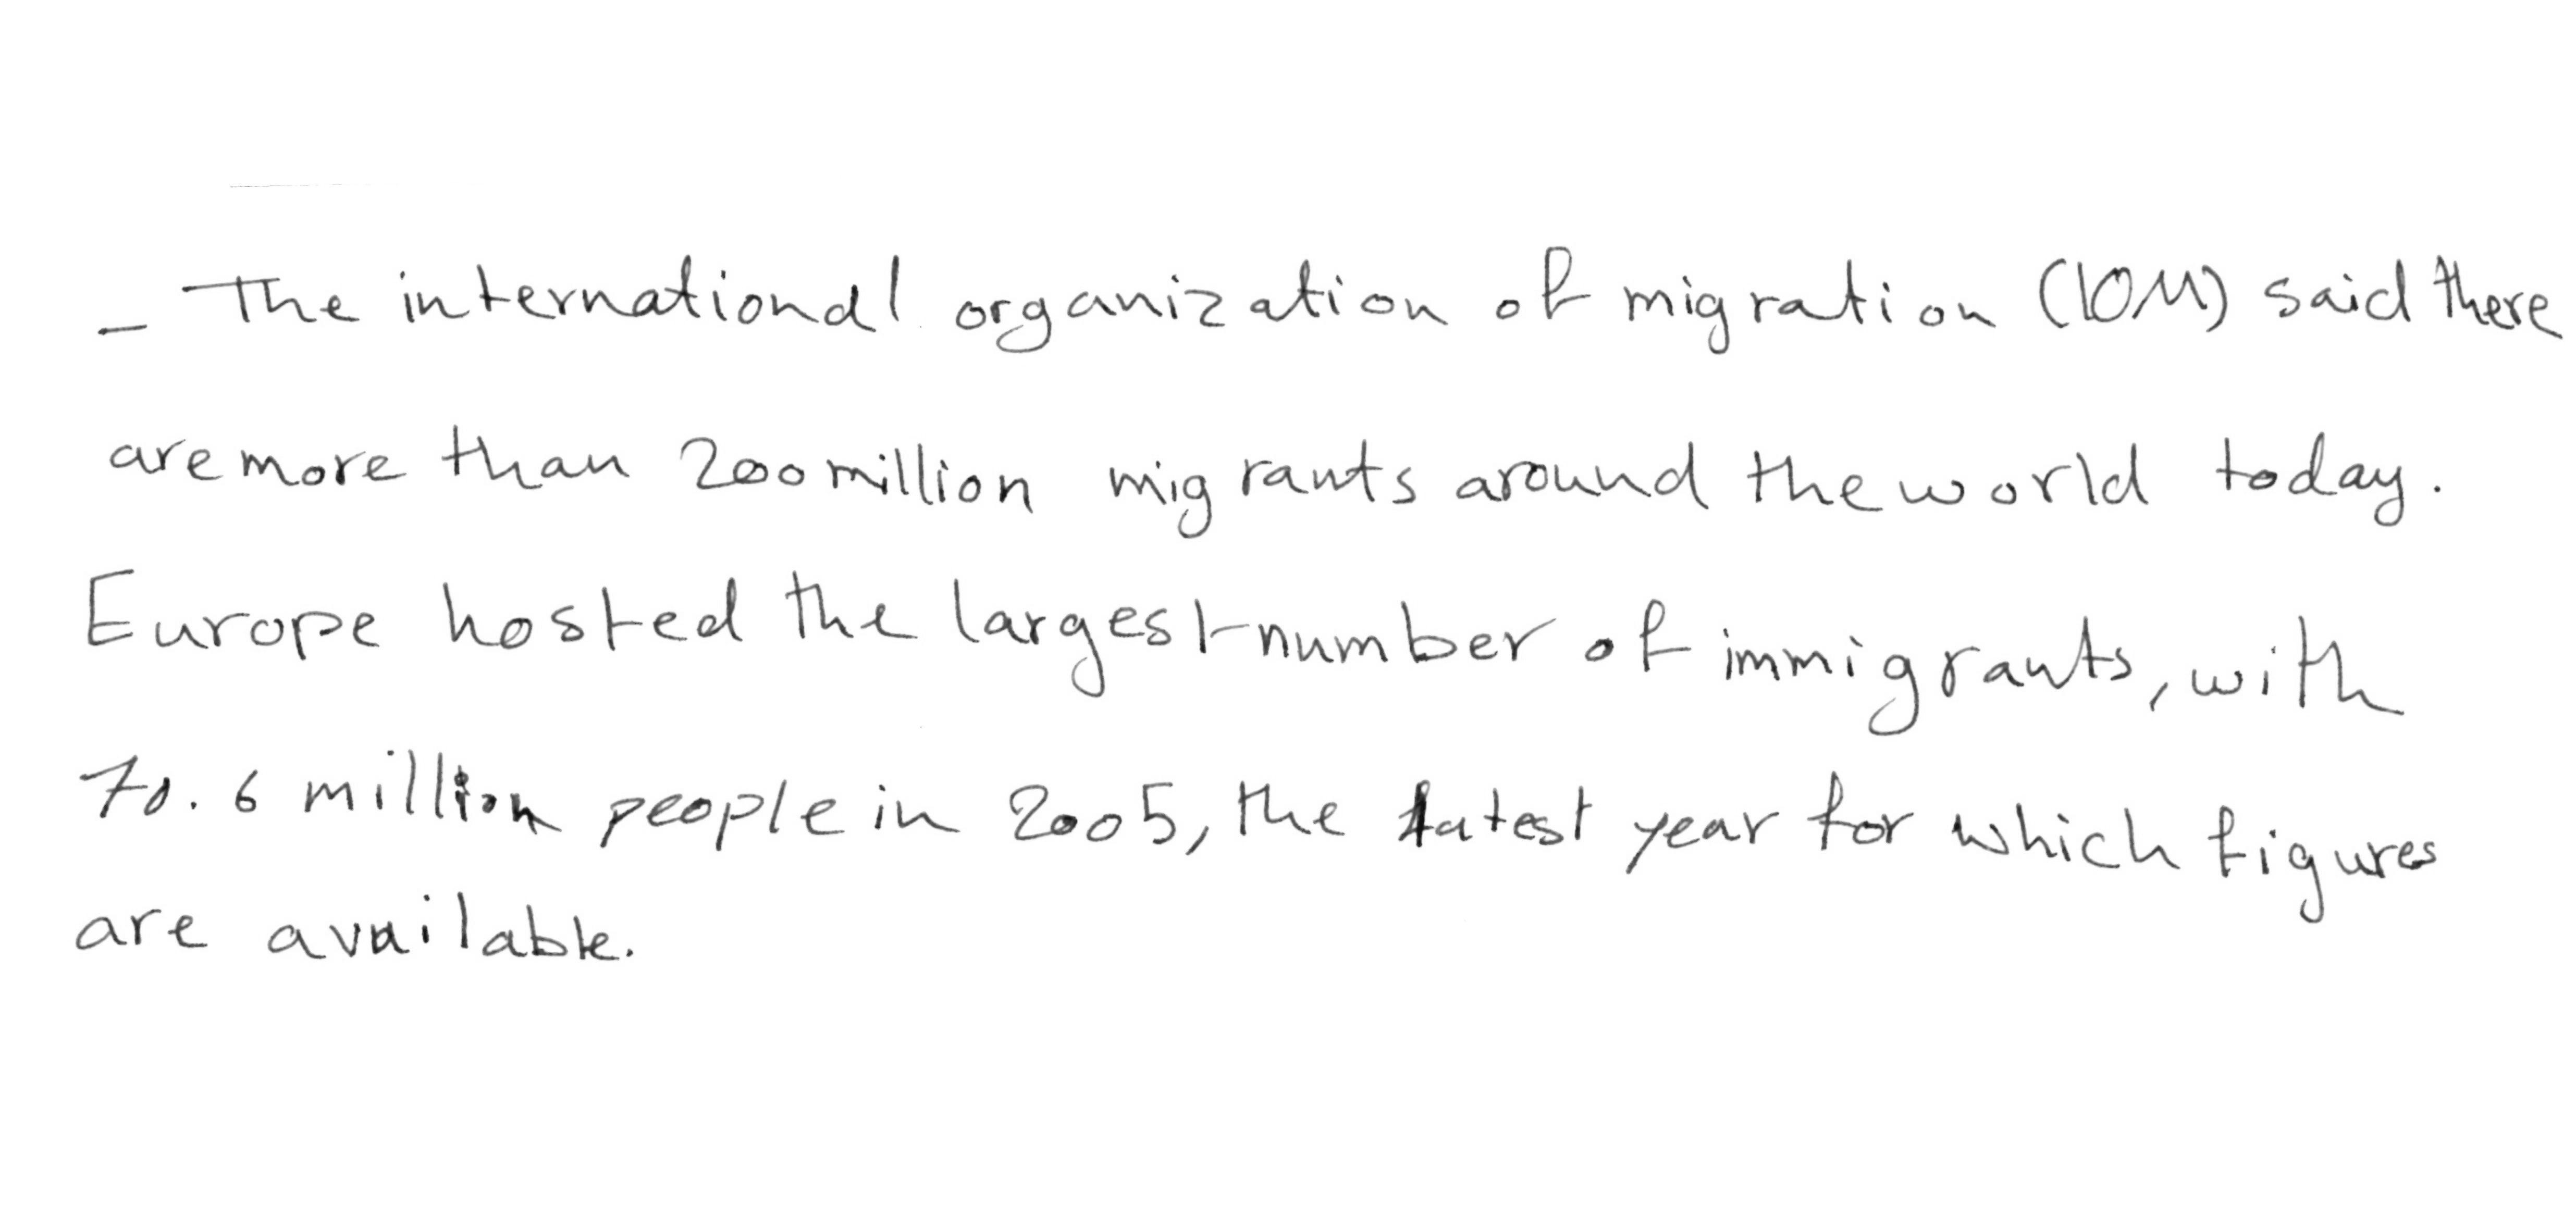 _ The international organization of migration (IOM) said there
are more than 200 million migrants around the world today.
Europe hosted the largest number of immigrants, with
70.6 million people in 2005, the latest year for which figures
are available.